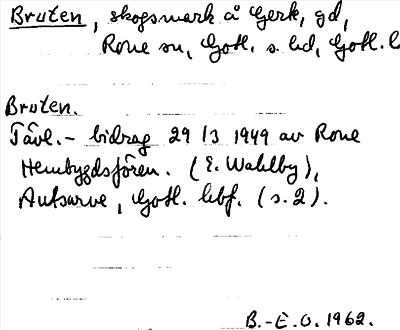 Bruten, skogsmark å Gerk, gd,
Rone sn, Gotl. s. hd, Gotl. l
Bruten.
Tävl.- bidrag 29/3 1949 av Rone
Hembygdsfören. (E. Wahlby),
Autsarve, Gotl. hbf. (s. 2).
B.-E. O. 1962.